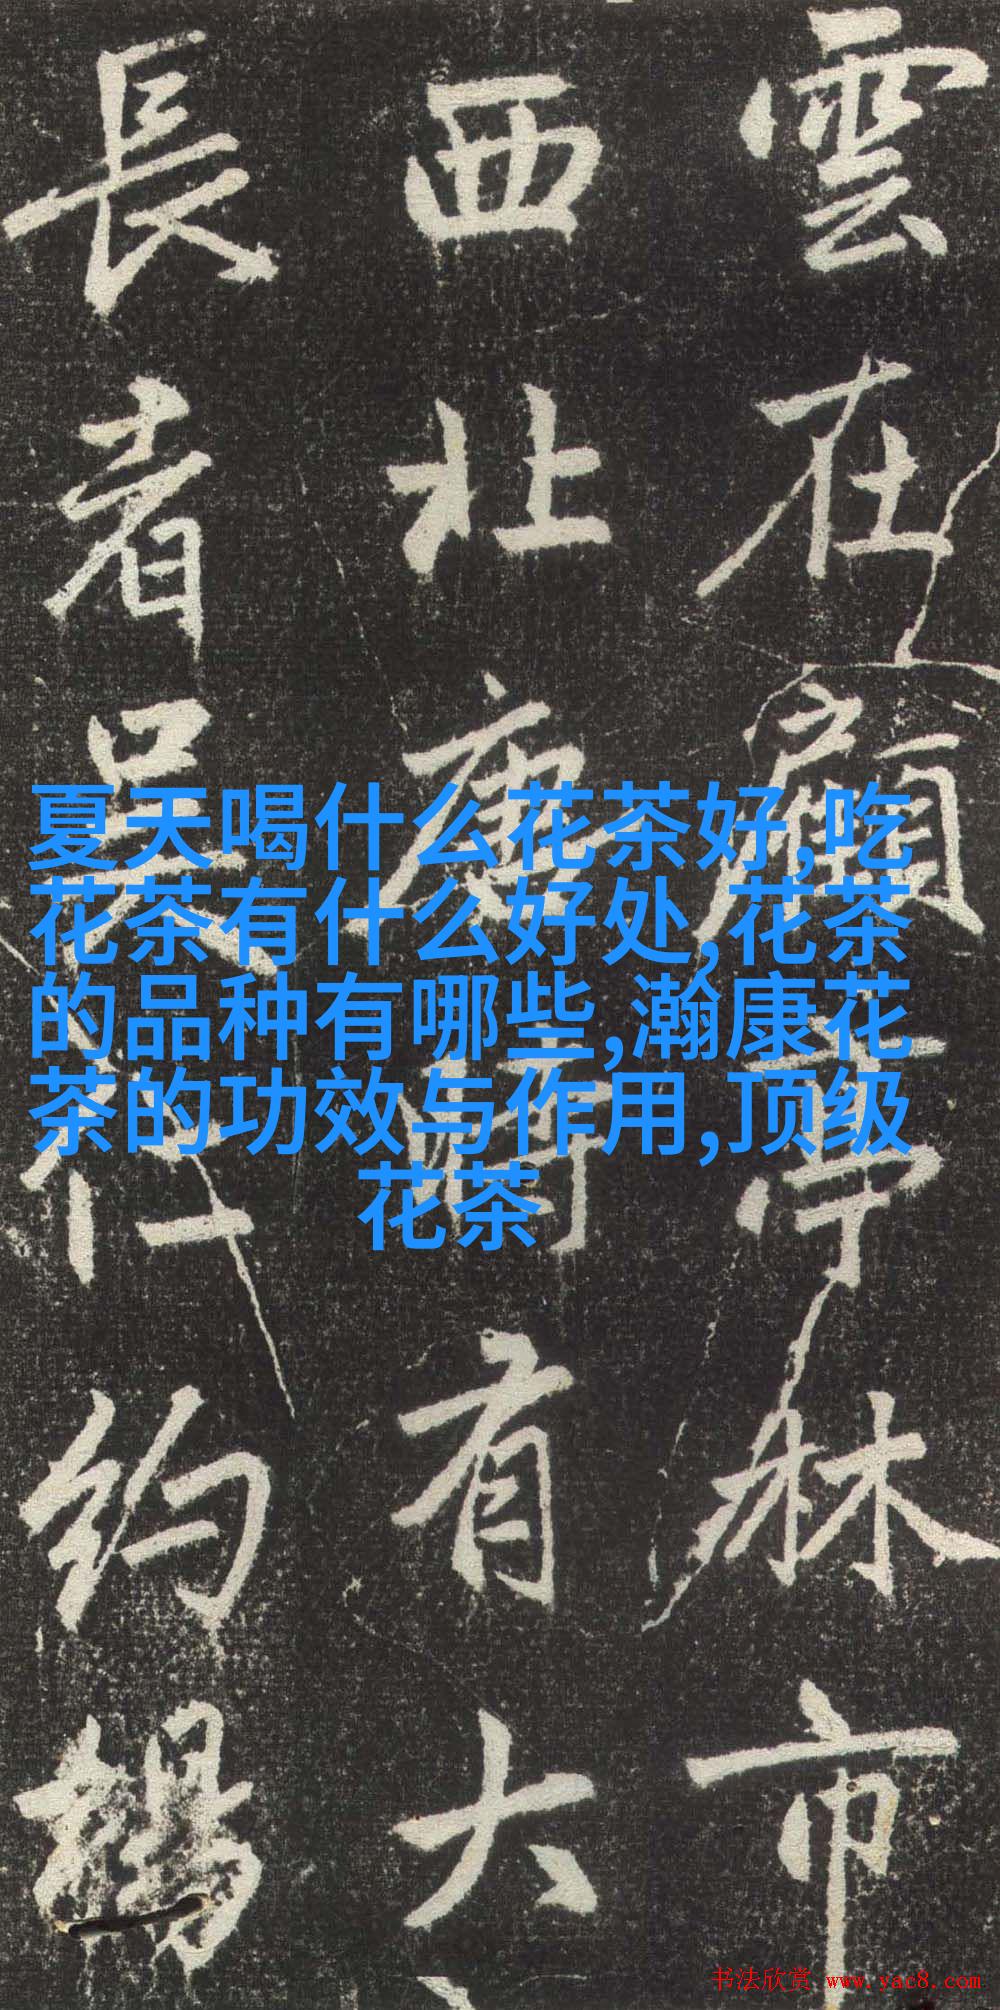 雲在顧亭林市
西北唐時有大
長者吳仁約
夏天喝什么花茶好,吃
花茶有什么好处,花茶
的品种有哪些,瀚康花
茶的功效与作用,顶级
花茶
书法欣赏 www.yac8.com